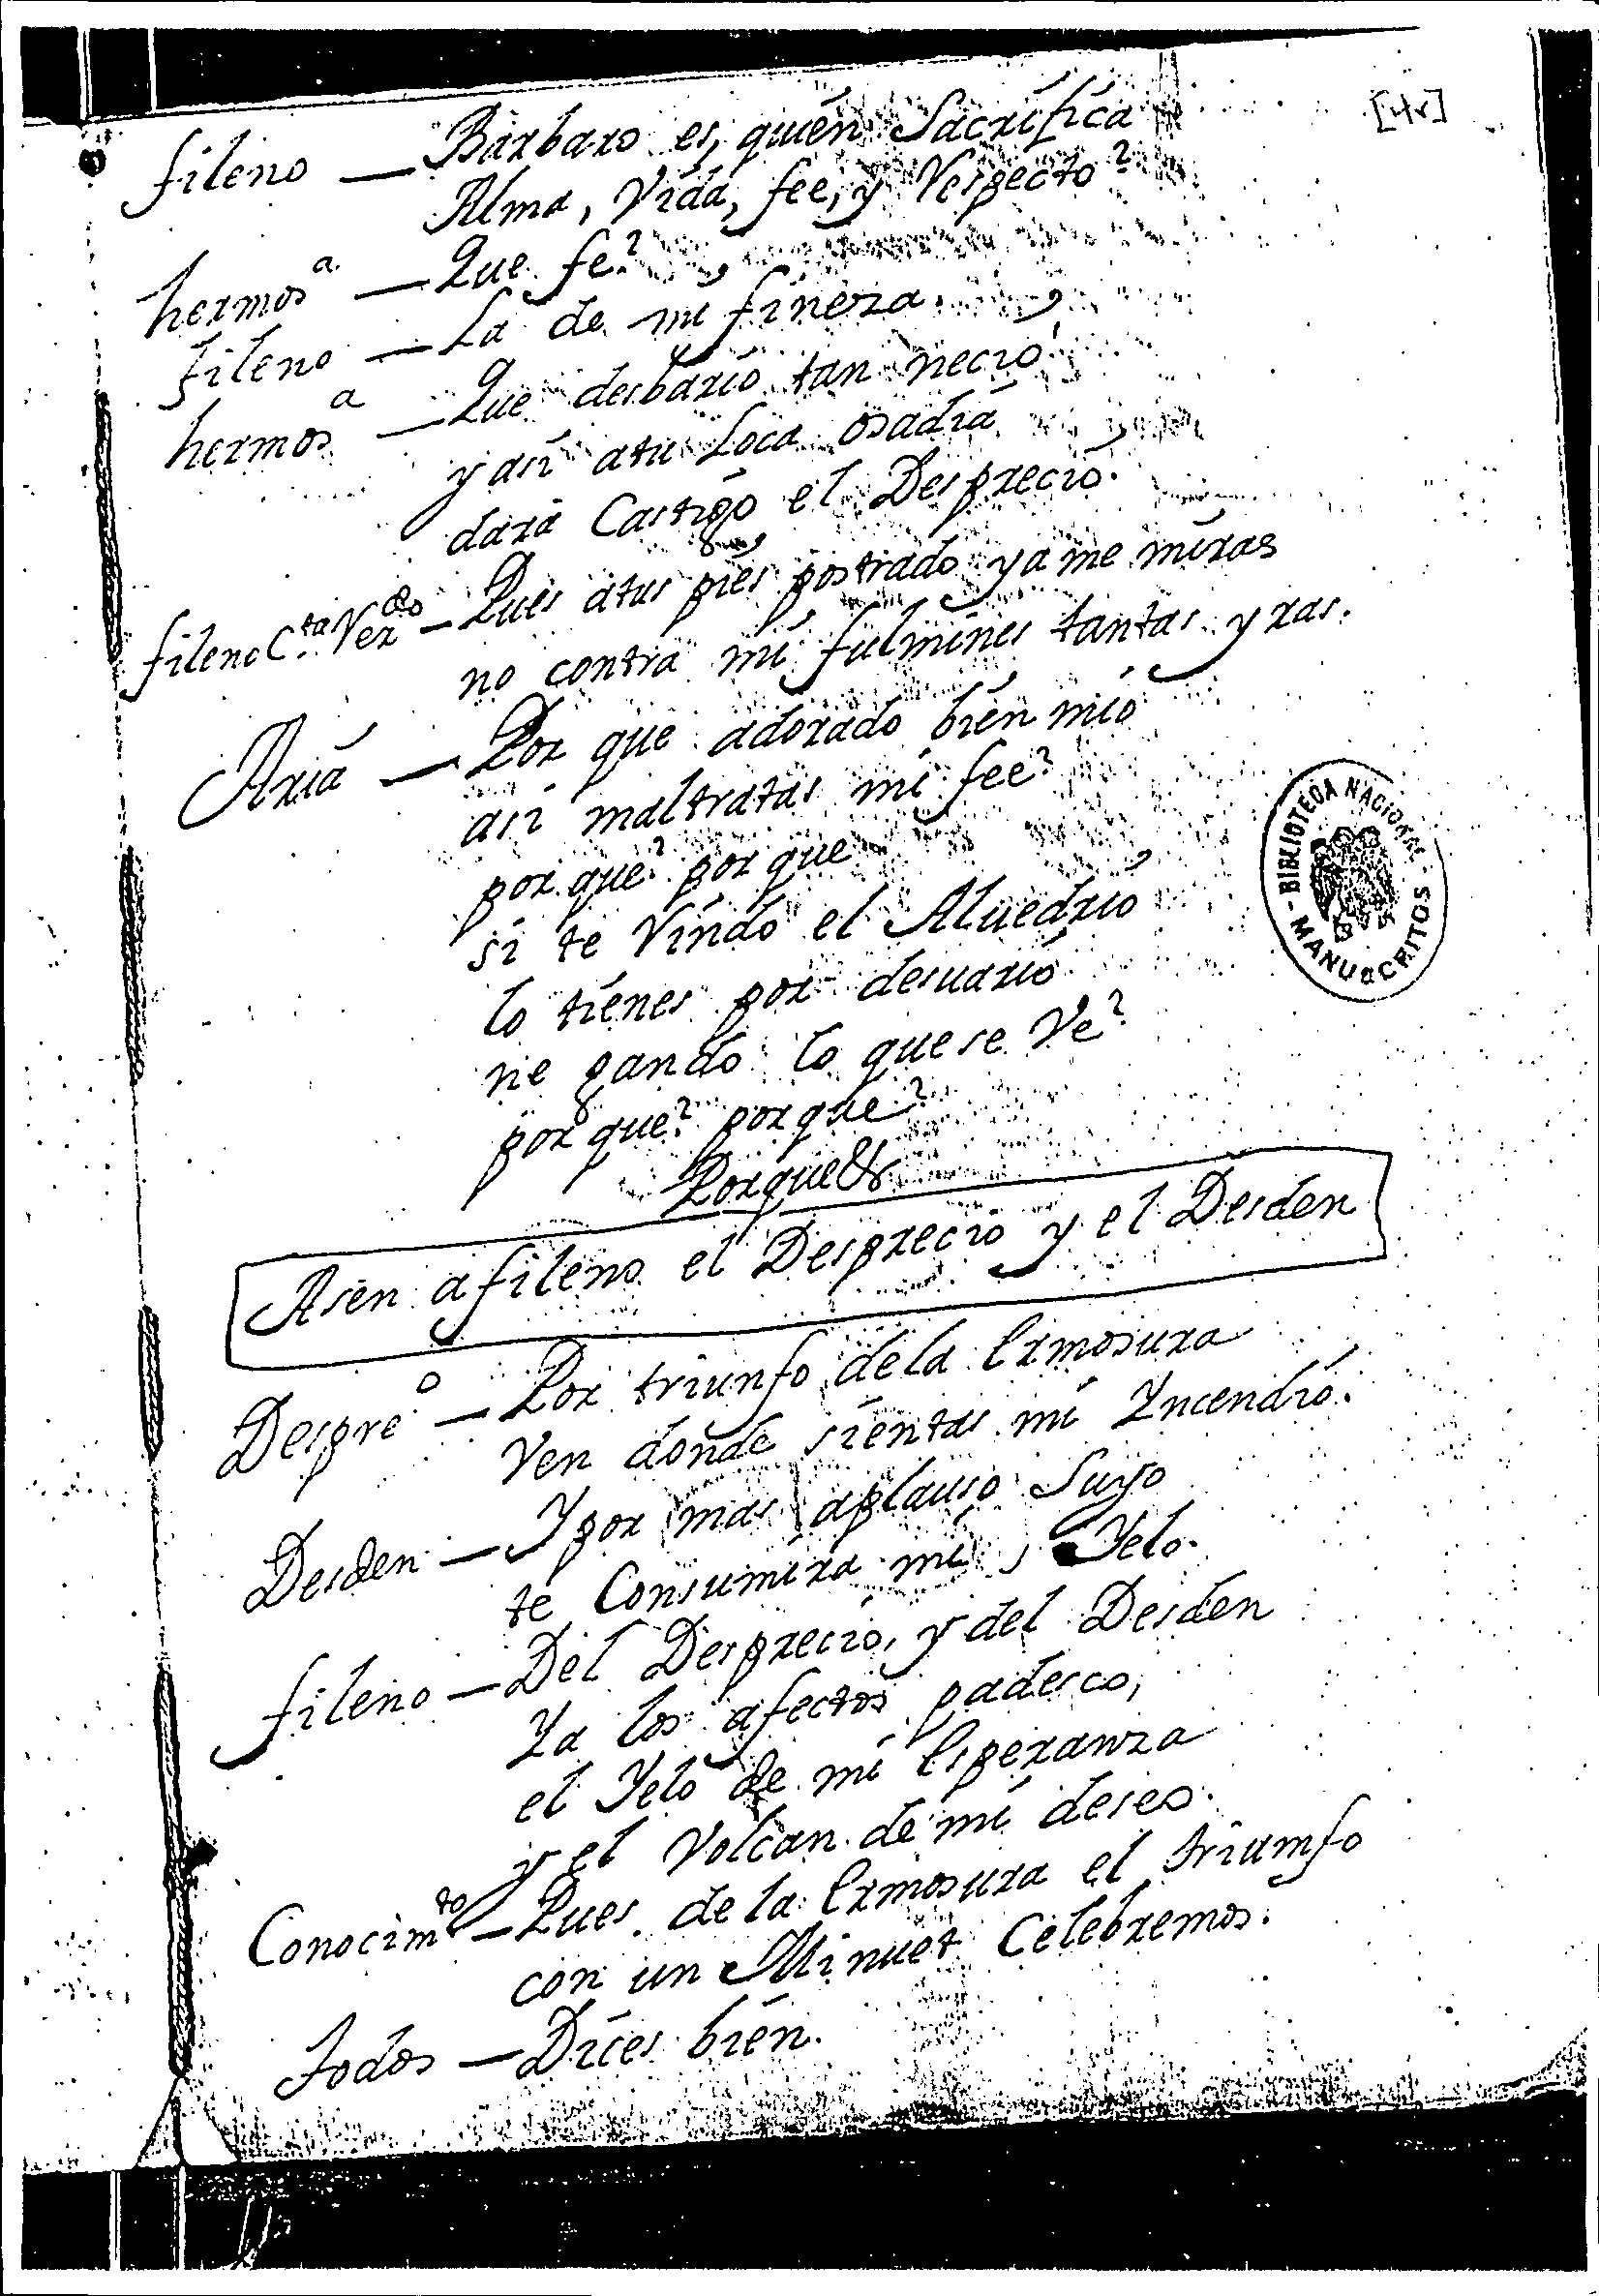 [4r]
fileno — Bárbaro es, quién Sacrifica
Alma, Vida, fee, y Respecto?
hermosª — Que fe?
fileno — La de mi fineza.
hermosª — Que desbario tan necio!
y así atu Loca osadia
dará Castigo el Desprecio.
fileno C.ta Rezdo — Pues atus pies postrado ya me miras
no contra mi fulmines tantas yras.
Aria — Por que adorado bien mio
así maltratas mi fee?
por que? por que
si te Rindo el Aluedrio
lo tienes por desuario
ne gando lo que se Ve?
por que? por que?
Porque &
Asen a fileno el Desprecio y el Desden
Despreº — Por triunfo dela Ermosura
Ven donde sientas mi Yncendio.
Desden — Y por mas aplauso Suyo
te Consumira mi Yelo.
fileno — Del Desprecio, y del Desden
Ya los afectos padesco,
el Yelo de mi Esperanza
y el Volcan de mi deseo.
Conocimto — Pues de la Ermosura el triumfo
con un Minuet Celebremos.
Todos — Dices bien.
BIBLIOTECA NACIONAL
MANUSCRITOS